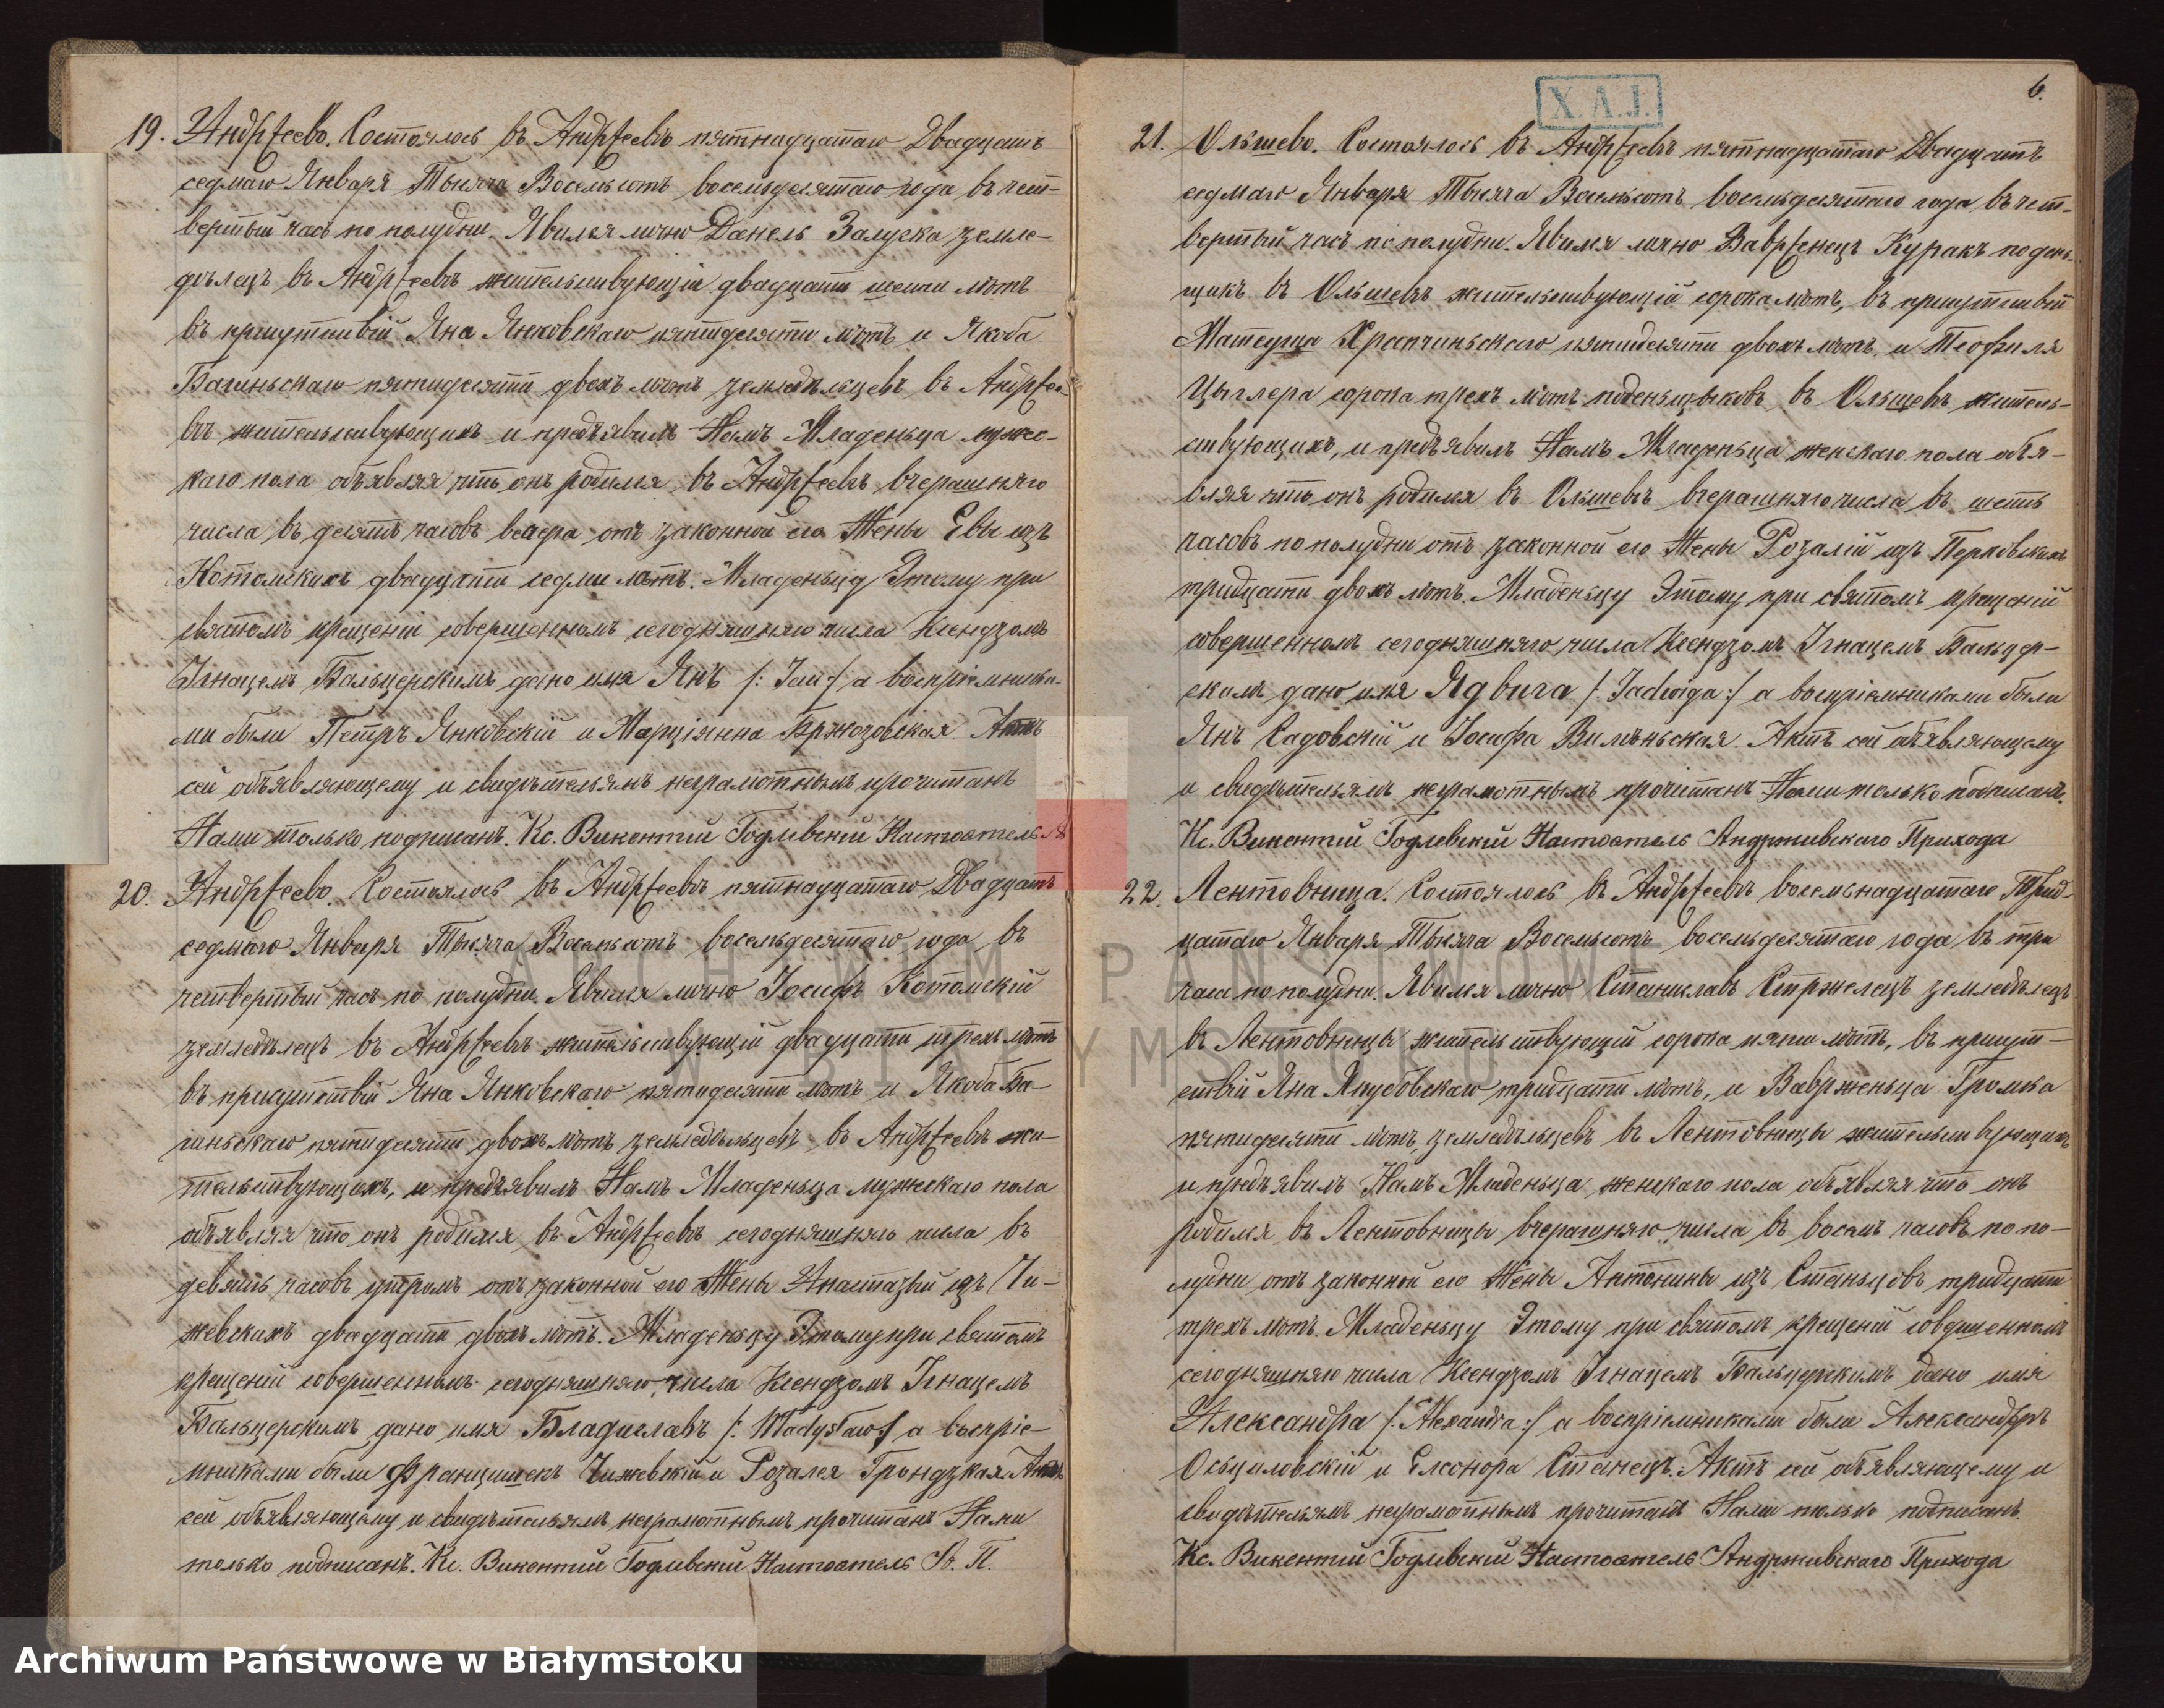 19. Андрѕеево. Состоялось въ Андрѕеевѣ пятнадцатаго Двадцать
седмаго Января Тысяча Восемьсотъ восемьдесятаго года въ чет-
вертый часъ по полудни. Явился лично Данель Залуска земле-
дѣлецъ въ Андрѕеевѣ жительствующій двадцати шести лѣтъ
въ присутствіи Яна Янковскаго пятидесяти лѣтъ и Якоба
Багиньскаго пятидесяти двохъ лѣтъ земледѣльцевъ въ Андрѕее-
вѣ жительствующихъ и предъявилъ Намъ Младеньца мужес-
каго пола объявляя что онъ родился въ Андрѕеевѣ вчерашняго
числа въ десять часовъ вечера отъ законной его Жены Евы изъ
Котомскихъ двадцати седми лѣтъ. Младеньцу Этому при
святомъ крещеніи совершенномъ сегодняшняго числа Ксендзомъ
Игнацемъ Бальцерскимъ дано имя Янъ /: Jan :/ а воспріемника-
ми были Петръ Янковскій и Марціянна Бржозовская. Актъ
сей объявляющему и свидѣтельямъ неграмотнымъ прочитанъ
Нами только подписанъ. Кс. Викентій Годлевскій Настоятель
20. Андрѕеево. Состоялось въ Андрѕеевѣ пятнадцатаго Двадцать
седмаго Января Тысяча Восемьсотъ восемьдесятаго года въ
четвертый часъ по полудни. Явился лично Іосифъ Котомскій
земледѣлецъ въ Андрѕеевѣ жительствующій двадцати трехъ лѣтъ
въ присутствіи Яна Янковскаго пятидесяти лѣтъ и Якоба Ба-
гиньскаго пятидесяти двохъ лѣтъ земледѣльцевъ въ Андрѕеевѣ жи-
тельствующихъ, и предъявилъ Намъ Младеньца мужескаго пола
объявляя что онъ родился въ Андрѕеевѣ сегодняшняго числа въ
девять часовъ утромъ отъ законной его Жены Анастазіи изъ Чи-
жевскихъ двадцати двохъ лѣтъ. Младеньцу Этому при святомъ
крещеніи совершенномъ сегодняшняго числа Ксендзомъ Игнацемъ
Бальцерскимъ дано имя Владиславъ /: Władysław :/ а воспріе-
мниками были Францишекъ Чижевскій и Розалея Грондзкая. Актъ
сей объявляющему и свидѣтельямъ неграмотнымъ прочитанъ Нами
только подписанъ. Кс. Викентій Годлевскій Настоятель А. П.
X.A.J.
6.
21. Ольшево. Состоялось въ Андрѕеевѣ пятнадцатаго Двадцать
седмаго Января Тысяча Восемьсотъ восемьдесятаго года въ чет-
вертый часъ по полудни. Явился лично Ваврѕенецъ Куракъ подень-
щикъ въ Ольшевѣ жительствующій сорока лѣтъ, въ присутствіи
Матеуша Храпчиньскаго пятидесяти двохъ лѣтъ и Теофиля
Цыглера сорока трехъ лѣтъ поденьщиковъ въ Ольшевѣ житель-
ствующихъ, и предъявилъ Намъ Младеньца женскаго пола объя-
вляя что онъ родился въ Ольшевѣ вчерашняго числа въ шесть
часовъ по полудни отъ законной его Жены Розаліи изъ Перковскихъ
тридцати двохъ лѣтъ. Младеньцу Этому при святомъ крещеніи
совершенномъ сегодняшняго числа Ксендзомъ Игнацемъ Бальцер-
скимъ дано имя Ядвига /: Jadwiga :/ а воспріемниками были
Янъ Садовскій и Іосифа Вилиньская. Актъ сей объявляющему
и свидѣтельямъ неграмотнымъ прочитанъ Нами только подписанъ.
Кс. Викентій Годлевскій Настоятель Андржевскаго Прихода
22. Лентовница. Состоялось въ Андрѕеевѣ восемьнадцатаго Трид-
цатаго Января Тысяча Восемьсотъ восемьдесятаго года въ три
часа по полудни. Явился лично Станиславъ Стржелецъ земледѣлецъ
въ Лентовницы жительствующій сорока пяти лѣтъ, въ присут-
ствіи Яна Якубовскаго тридцати лѣтъ, и Вавржењца Громка
пятидесяти лѣтъ, земледѣльцевъ въ Лентовницы жительствующихъ
и предъявилъ Намъ Младеньца женскаго пола объявляя что онъ
родился въ Лентовницы вчерашняго числа въ восемь часовъ по по-
лудни отъ законной его Жены Антонины изъ Станьцовъ тридцати
трехъ лѣтъ. Младеньцу Этому при святомъ крещеніи совершенномъ
сегодняшняго числа Ксендзомъ Игнацемъ Бальцерскимъ дано имя
Александра /: Alexandra :/ а воспріемниками были Александръ
Осьциловскій и Елеонора Станецъ. Актъ сей объявляющему и
свидѣтельямъ неграмотнымъ прочитанъ Нами только подписанъ.
Кс. Викентій Годлевскій Настоятель Андржевскаго Прихода
ARCHIWUM PAŃSTWOWE
W BIAŁYMSTOKU
Archiwum Państwowe w Białymstoku